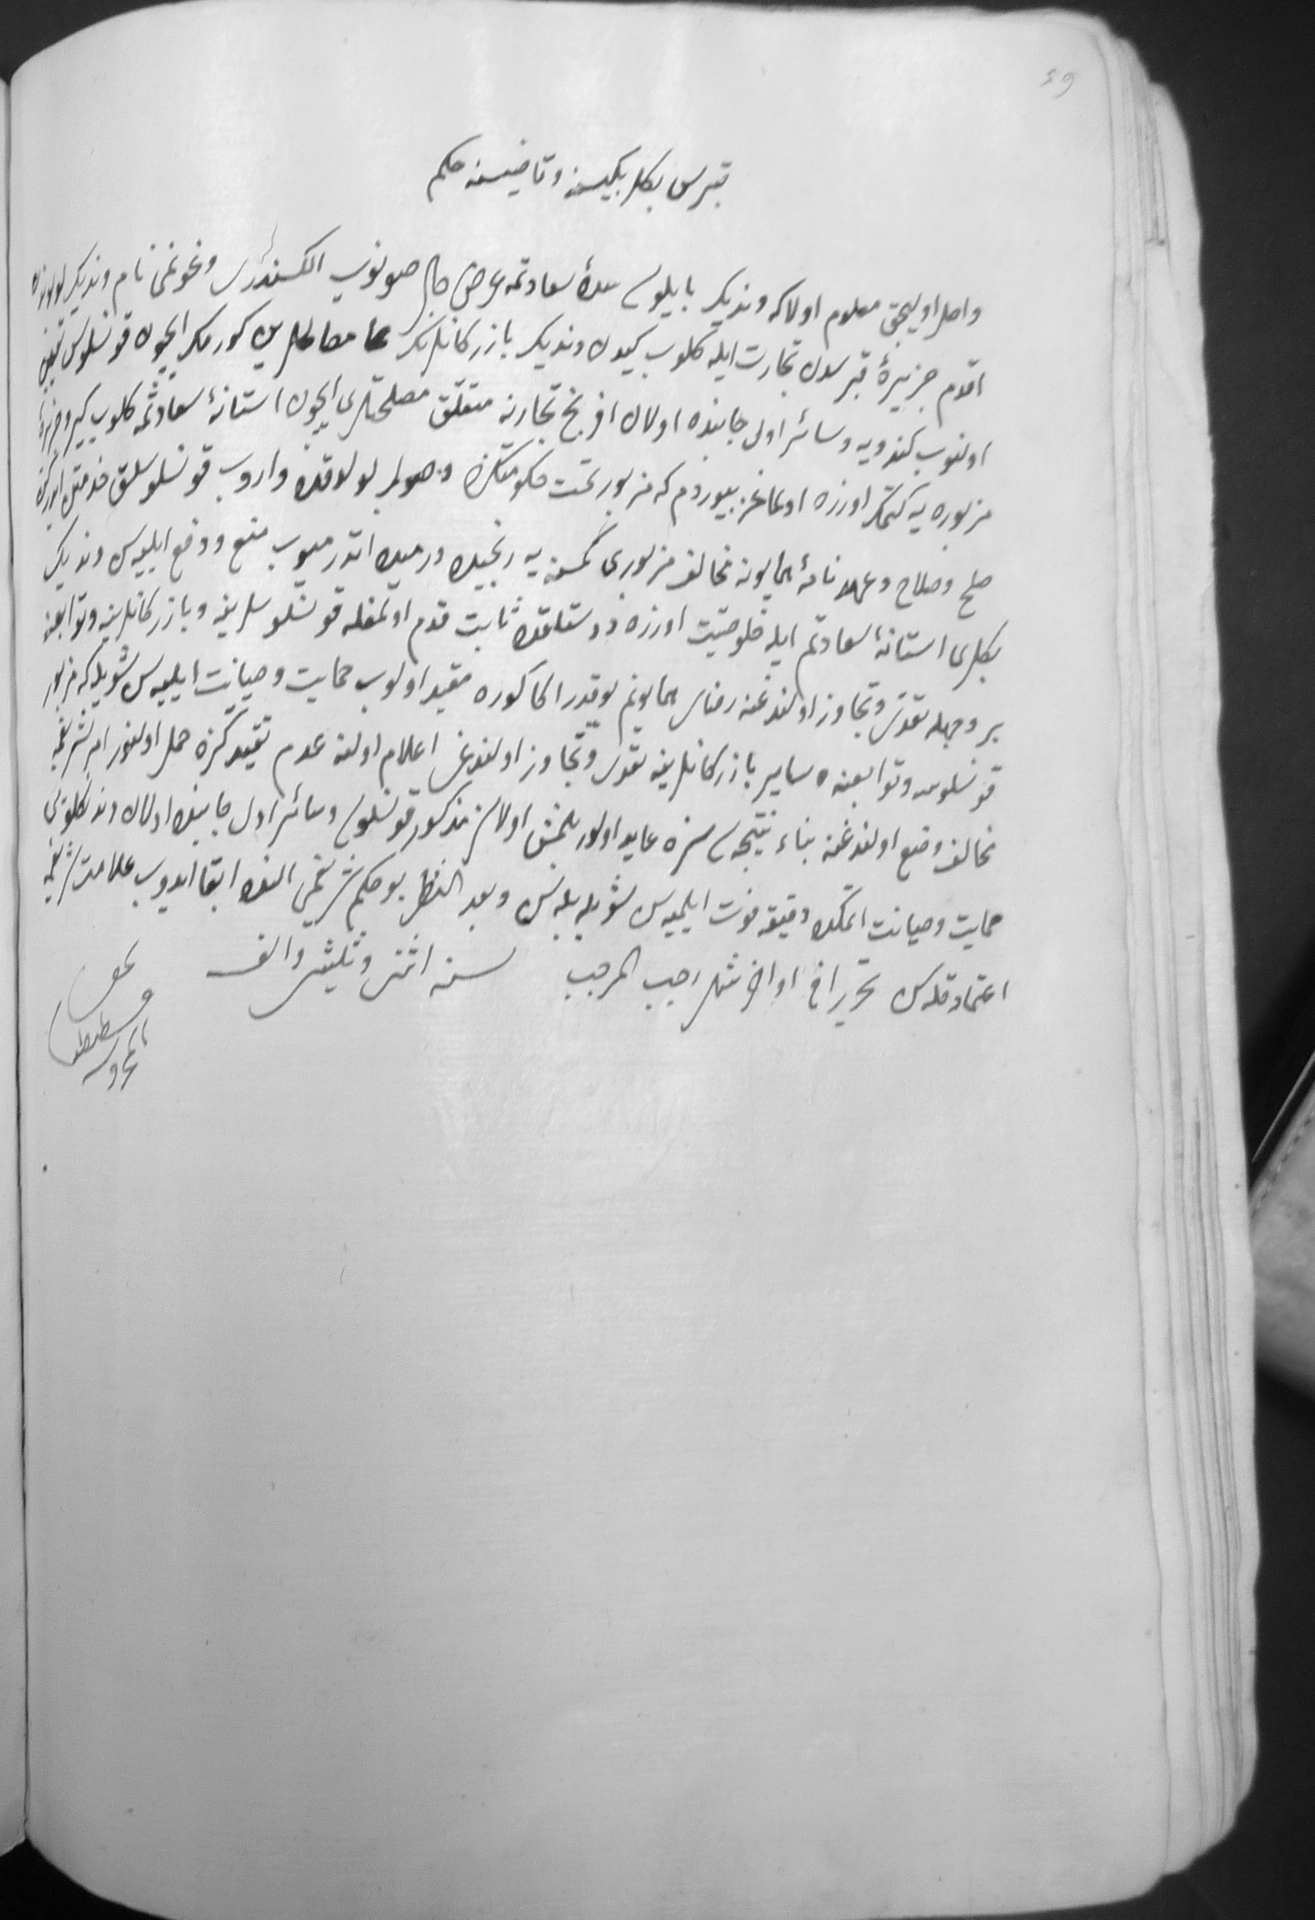 59
قبرس بكلربكيسنه وقاضيسنه حكم
واصل اوليجق معلوم اولا كه ونديك بايلوسى سدۀ سعادتمه عرض حال صونوب الكسندرى نام ونديكلو
اقدم جزيرۀ قبرسدن تجارت ايله كلوب كيدن ونديك بازركانلرينك مصالحلرين كورمك ايچون قونسلوس تعيين
اولنوب كندويه وسائر اول جانبده اولان افرنج تجارينه متعلق مصلحتلرى ايچون استانۀ سعادتمه كلوب كيرو جزيرۀ
مزبوره يه كتمك اوزره اولمغن بيوردم كه مزبور تحت حكومتكزه وصول بولدقده واروب قونسلوسلق خدمتن ايدركن
صلح وصلاح وعهدنامۀ همايونه مخالف مزبورى كمسنه يه رنجيده ورميده اتدرميوب منع ودفع ايليه سن ونديك
بكلرى استانۀ سعادتم ايله خلوصيت اوزره دوستلقده ثابت قدم اولمغله قونسلوسلرينه وبازركانلرينه وتوابعنه
بر وجهله تعدى وتجاوز اولندغنه رضاى همايونم يوقدر اكا كوره مقيد اولوب حمايت وصيانت ايليه سن شويله كه مزبور
قونسلوسه وتوابعنه وساير بازركانلرينه تعدى وتجاوز اولندغى اعلام اولنه عدم تقيدكزه حمل اولنور امر شريفمه
مخالف وضع اولندغنه بناء نتيجه سى سزه عايد اولور بلمش اولاسز مذكور قونسلوسى وسائر اول جانبده اولان ونديكلويى
حمايت وصيانت اتمكده دقيقه فوت ايلميه سن شويله بله سن وبعد النظر بو حكم شريفمى النده ابقا ايدوب علامت شريفه
اعتماد قله سن تحريرا فى اواخر شهر رجب المرجب سنه اثنى وثلثين والف
قسطنطنيه
المحروسه